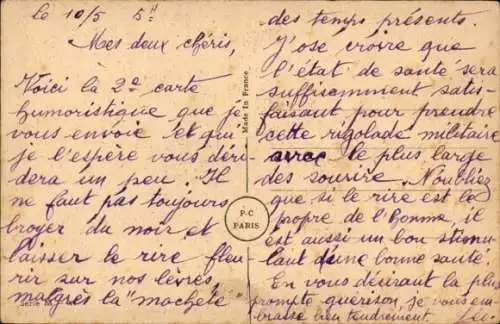 le 10/5 5H
Mes deux chéris,
Voici la 2e carte
humoristique que je
vous envoie et qui
je l'espère vous déri-
dera un peu. Il
ne faut pas toujours
broyer du noir et
laisser le rire fleu-
rir sur nos lèvres
malgrès la "mocheté"
Série M.
Made in France
P.C
PARIS
des temps présents.
J'ose croire que
l'état de santé sera
suffisemment satis-
faisant pour prendre
cette rigolade militaire
avec le plus large
des sourire. N'oubliez
que si le rire est le
propre de l'homme, il
est aussi un bon stimu-
lant d'une bonne santé.
En vous désirant la plus
prompte guérison, je vous em-
brasse bien tendrement.